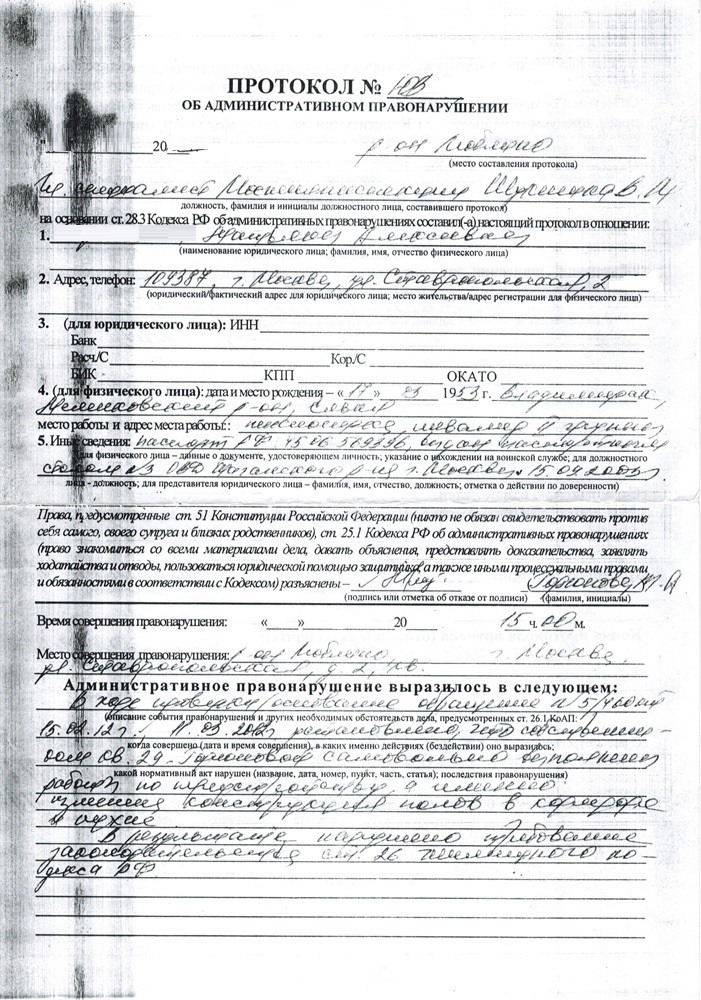 ПРОТОКОЛ № ЮВ
ОБ АДМИНИСТРАТИВНОМ ПРАВОНАРУШЕНИИ
20 р-он Люблино
(место составления протокола)
Гл. специалист Мосжилинспекции
должность, фамилия и инициалы должностного лица, составившего протокол)
на основании ст. 28.3 Кодекса РФ об административных правонарушениях составил(-а) настоящий протокол в отношении:
1. Алексеевна
(наименование юридического лица; фамилия, имя, отчество физического лица)
2. Адрес, телефон: 109387, г. Москва, ул. Ставропольская, 2
(юридический/фактический адрес для юридического лица; место жительства/адрес регистрации для физического лица)
3. (для юридического лица): ИНН
Банк
Расч/С Кор/С
БИК КПП ОКАТО
4. (для физического лица): дата и место рождения – « 17 » 03 1953 г. Владимирская,
р-он,
место работы и адрес места работы:: пенсионерка инвалид II группы
5. Иные сведения: паспорт РФ 45 06 569896, выдан паспортным
(для физического лица – данные о документе, удостоверяющем личность; указание о нахождении на воинской службе; для должностного
столом №3 ОВД р-на г. Москвы 15.04.2003г.
лица - должность; для представителя юридического лица – фамилия, имя, отчество, должность; отметка о действии по доверенности)
Права, предусмотренные ст. 51 Конституции Российской Федерации (никто не обязан свидетельствовать против
себя самого, своего супруга и близких родственников), ст. 25.1 Кодекса РФ об административных правонарушениях
(право знакомиться со всеми материалами дела, давать объяснения, представлять доказательства, заявлять
ходатайства и отводы, пользоваться юридической помощью защитника, а также иными процессуальными правами
и обязанностями в соответствии с Кодексом) разъяснены –
(подпись или отметка об отказе от подписи) (фамилия, инициалы)
Время совершения правонарушения: « » 20 15 ч. 00 м.
Место совершения правонарушения: р-он Люблино г. Москва,
ул. Ставропольская, д. 2, кв.
Административное правонарушение выразилось в следующем:
В ходе проверки/основание обращение №
(описание события правонарушения и других необходимых обстоятельств дела, предусмотренных ст. 26.1 КоАП;
15.02.12г. 11.03.2012г установлено, что собственни-
когда совершено (дата и время совершения), в каких именно действиях (бездействии) оно выразилось;
ком кв. 29 самовольно выполнены
какой нормативный акт нарушен (название, дата, номер, пункт, часть, статья); последствия правонарушения)
работы по переустройству, а именно
изменена конструкция полов в коридоре
и кухне
В результате нарушено требование
законодательства ст. 26 жилищного ко-
декса РФ